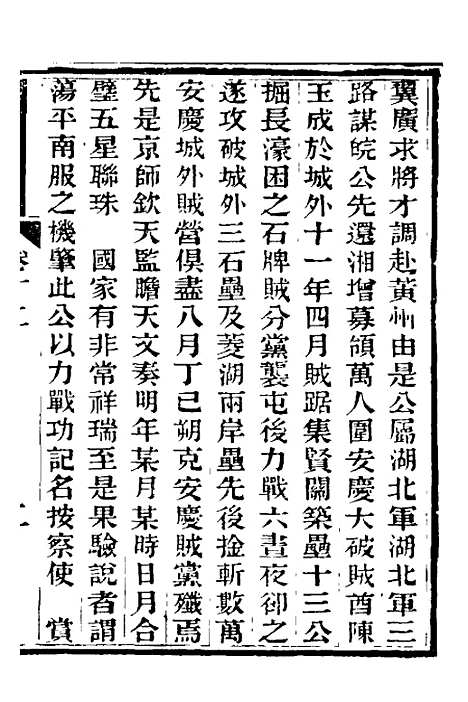 翼廣求將才調赴黃州由是公屬湖北軍湖北軍三
路謀皖公先還湘增募頟萬人圍安慶大破賊酋陳
玉成於城外十一年四月賊踞集賢關築壘十三公
掘長濠困之石牌賊分黨襲屯後力戰六晝夜卻之
遂攻破城外三石壘及菱湖兩岸壘先後捦斬數萬
安慶城外賊營俱盡八月丁巳朔克安慶賊黨殲焉
先是京師欽天監瞻天文奏明年某月某時日月合
璧五星聯珠　國家有非常祥瑞至是果驗說者謂
蕩平南服之機肇此公以力戰功記名按察使　賞